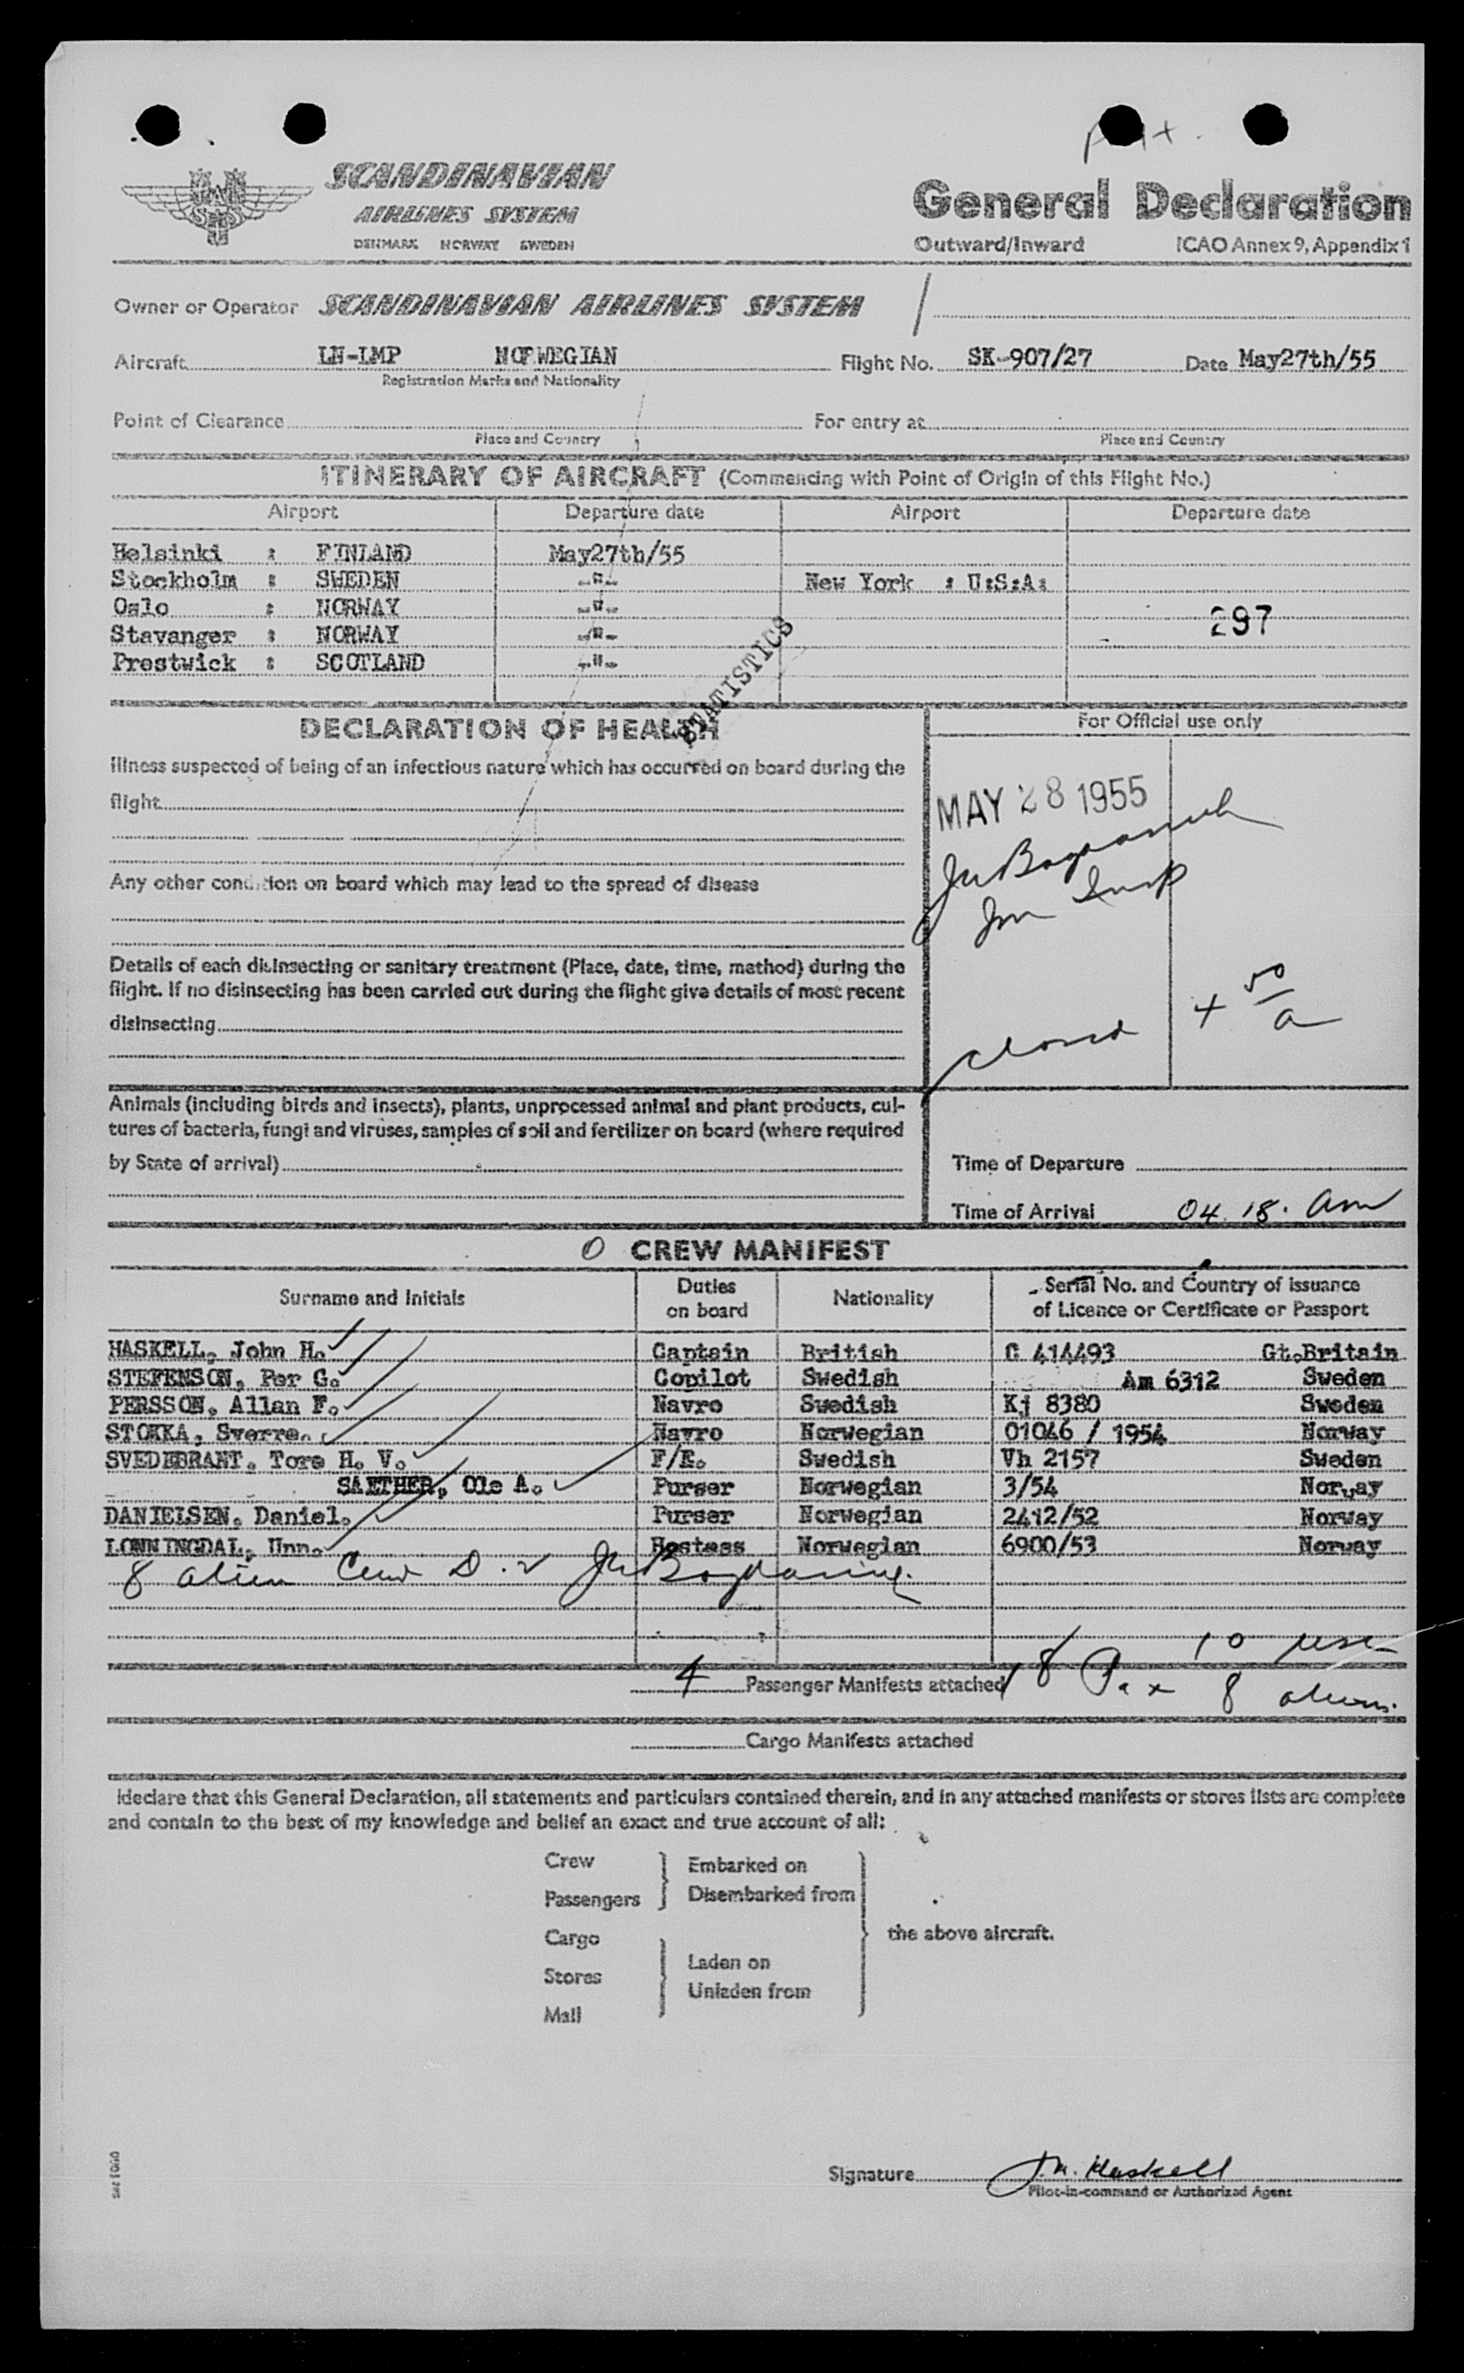 Pax.
SAS
SCANDINAVIAN
AIRLINES SYSTEM
DENMARK NORWAY SWEDEN
General Declaration
Outward/Inward ICAO Annex 9, Appendix 1
Owner or Operator SCANDINAVIAN AIRLINES SYSTEM
Aircraft LN-LMP NORWEGIAN Flight No. SK-907/27 Date May27th/55
Registration Marks and Nationality
Point of Clearance For entry at
Place and Country Place and Country
ITINERARY OF AIRCRAFT (Commencing with Point of Origin of this Flight No.)
Airport Departure date Airport Departure date
Helsinki : FINLAND May27th/55
Stockholm : SWEDEN -"- New York : U:S:A:
Oslo : NORWAY -"- 297
Stavanger : NORWAY -"-
Prestwick : SCOTLAND -"-
STATISTICS
DECLARATION OF HEALTH
For Official use only
Illness suspected of being of an infectious nature which has occurred on board during the
flight
MAY 28 1955
Any other condition on board which may lead to the spread of disease
Im Insp
Details of each disinsecting or sanitary treatment (Place, date, time, method) during the
flight. If no disinsecting has been carried out during the flight give details of most recent
disinsecting
closed 4 50/a
Animals (including birds and insects), plants, unprocessed animal and plant products, cul-
tures of bacteria, fungi and viruses, samples of soil and fertilizer on board (where required
by State of arrival)
Time of Departure
Time of Arrival 04.18. am
0 CREW MANIFEST
Surname and Initials Duties on board Nationality Serial No. and Country of issuance of Licence or Certificate or Passport
HASKELL, John H. Captain British C 414493 Gt.Britain
STEFENSON, Per G. Copilot Swedish Am 6312 Sweden
PERSSON, Allan F. Navro Swedish Kj 8380 Sweden
STOKKA, Sverre. Navro Norwegian 01046 / 1954 Norway
SVEDEBRANT, Tore H. V. F/E. Swedish Vh 2157 Sweden
SAETHER, Ole A. Purser Norwegian 3/54 Norway
DANIELSEN, Daniel. Purser Norwegian 2412/52 Norway
LONNINGDAL, Unn. Hostess Norwegian 6900/53 Norway
8 alien Crew
4 Passenger Manifests attached 18 Pax 10 usc
8 aliens.
Cargo Manifests attached
I declare that this General Declaration, all statements and particulars contained therein, and in any attached manifests or stores lists are complete
and contain to the best of my knowledge and belief an exact and true account of all:
Crew
Passengers
Embarked on
Disembarked from
Cargo
Stores
Mail
Laden on
Unladen from
the above aircraft.
Signature J.H. Haskell
Pilot-in-command or Authorized Agent